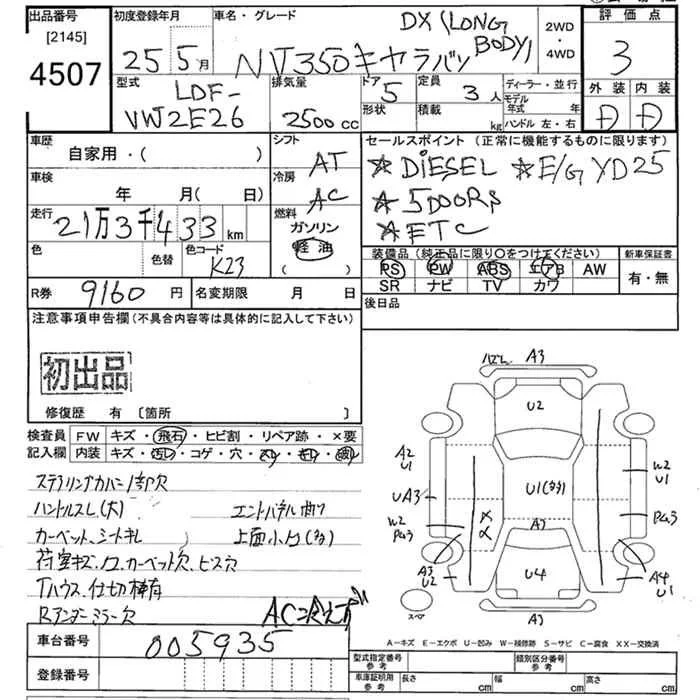 出品番号
[2145]
4507
初度登録年月
25年5月
車名・グレード
NV350キャラバン
DX(LONG
BODY)
2WD
・
4WD
評価点
3
型式
LDF-
VW2E26
排気量
2500cc
ドア
5
形状
定員
3人
積載
kg
ディーラー・並行
モデル
年式 年
ハンドル 左・右
外装 内装
D D
車歴
自家用・( )
車検
年 月( 日)
走行
21万3千433km
色
色替
色コード
K23
シフト
AT
冷房
AC
燃料
ガソリン
軽油
( )
セールスポイント(正常に機能するものに限ります)
☆DIESEL ☆E/G YD25
☆5DOORS
☆ETC
装備品(純正品に限り○をつけてください)
PS PW ABS エアB AW
SR ナビ TV カワ
新車保証書
有・無
R券
9160円
名変期限 月 日
後日品
注意事項申告欄(不具合内容等は具体的に記入して下さい)
初出品
修復歴 有 〔箇所 〕
検査員
記入欄
FW キズ・飛石・ヒビ割・リペア跡・×要
内装 キズ・汚レ・コゲ・穴・スレ・キレ・破レ
ステアリングカバー1部欠
ハンドルスレ(大) エントパネル曲り
カーベット、シートキレ 上面小凹(多)
荷室キズ、凹、カーベット欠、ビス穴
Tハウス、仕切棒有
Rアンダーミラー欠
AC冷えず
車台番号
005935
登録番号
A3
U2
A2
U1
UA3
W2
U1(多)
W2
U1
A3
U2
U4
A4
U1
スペア
A-キズ E-エクボ U-凹み W-補修跡 S-サビ C-腐食 XX-交換済
型式指定番号
参考
類別区分番号
参考
車庫証明用
参考
長さ cm 幅 cm 高さ cm